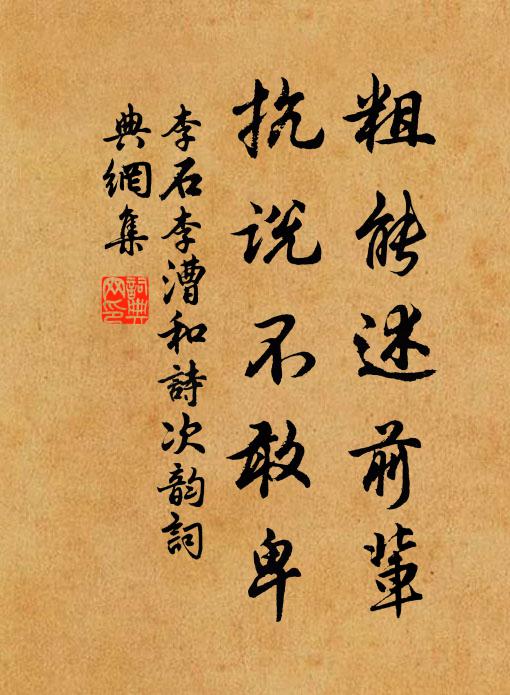 粗能述前輩
抗說不敢卑
李石李漕和詩次韵詞
典網集
詞典網印